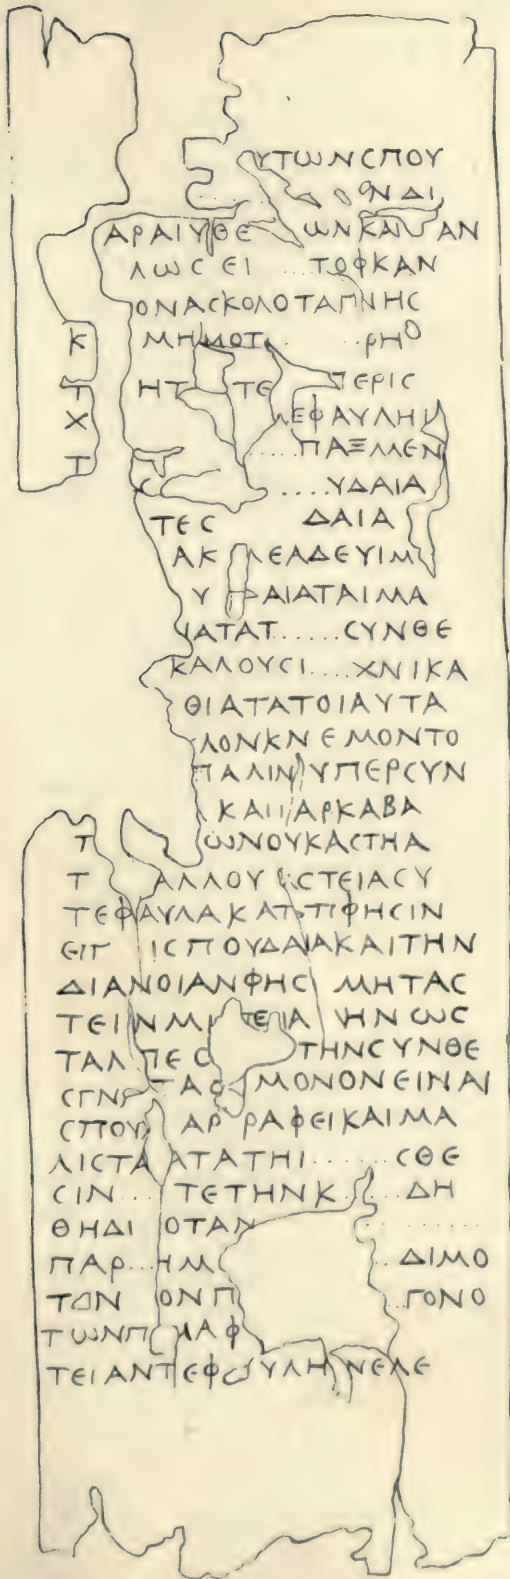 ΥΤΩΝϹΠΟΥ
ΟΝΔΙ
ΑΡΑΙΥΘΕ ΩΝΚΑΙ ΑΝ
ΛΩϹ ΕΙ ... ΤΩΦΚΑΝ
ΟΝΑϹΚΟΛΟΤΑΠΝΗϹ
Κ ΜΗΜΟΤ.....ΡΗΟ
Τ ΗΤ ΤΕ ΠΕΡΙϹ
Χ ΕΦΑΥΛΗΙ
Τ ....ΠΑΞΛΛΕΝ
Ϲ ....ΥΔΑΙΑ
ΤΕϹ ΔΑΙΑ
ΑΚ ΛΕΛΔΕΥΙΜ
Υ ΑΙΑΤΑΙΜΑ
ΙΑΤΑΤ.....ϹΥΝΘΕ
ΚΑΛΟΥϹΙ...ΧΝΙΚΑ
ΘΙΑΤΑΤΟΙΑΥΤΑ
ΛΟΝΚΝΕΜΟΝΤΟ
ΠΑΛΙΝ ΥΠΕΡϹΥΝ
ΚΑΙΙ ΑΡΚΑΒΑ
Τ ΩΝΟΥΚΑϹΤΗΑ
Τ ΑΛΛΟΥ ϹΤΕΙΑϹΥ
ΤΕΦΑΥΛΑΚΑΤ ΠΦΗϹΙΝ
ΘΙΓ ΙϹΠΟΥΔΑΙΑΚΑΙΤΗΝ
ΔΙΑΝΟΙΑΝΦΗϹΙ ΜΗΤΑϹ
ΤΕΙΝΜΙ ΤΕΙΑ ΗΝΩϹ
ΤΑΛ ΠΕϹ ΤΗΝϹΥΝΘΕ
ϹΓΝΡ ΤΑΦ ΜΟΝΟΝΕΙΝΑΙ
ϹΠΟΥ ΑΡ ΡΑΦΕΙΚΑΙΜΑ
ΛΙϹΤΑ ΑΤΑΤΗΙ......ϹΘΕ
ϹΙΝ... ΤΕΤΗΝΚ ΔΗ
ΘΗΔΙ ΟΤΑΝ
ΠΑΡ..ΗΜϹ ..ΔΙΜΟ
ΤΟΝ ΟΝΠ ..ΓΟΝΟ
ΤΩΝΠ ΑΦ
ΤΕΙΑΝΤΕΦ ΥΛΗ ΝΕΛΕ